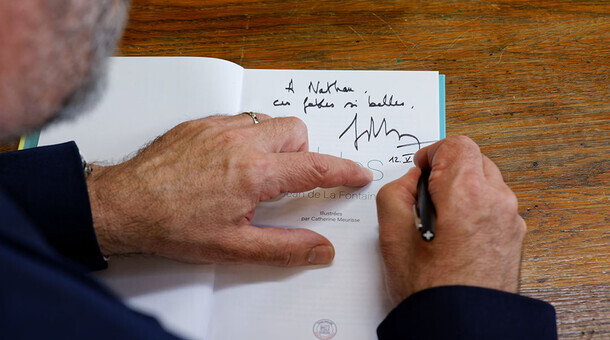 A Nathan,
ces fables si belles.
12.V
les
Jean de La Fontain
Illustrées
par Catherine Meurisse